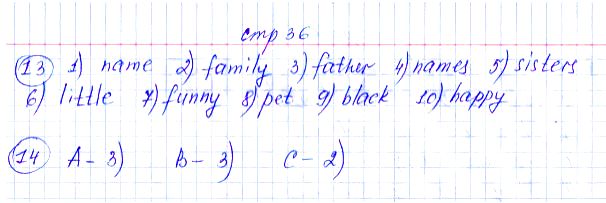 стр 36
13 1) name 2) family 3) father 4) names 5) sisters
6) little 7) funny 8) pet 9) black 10) happy
14 A - 3) B - 3) C - 2)